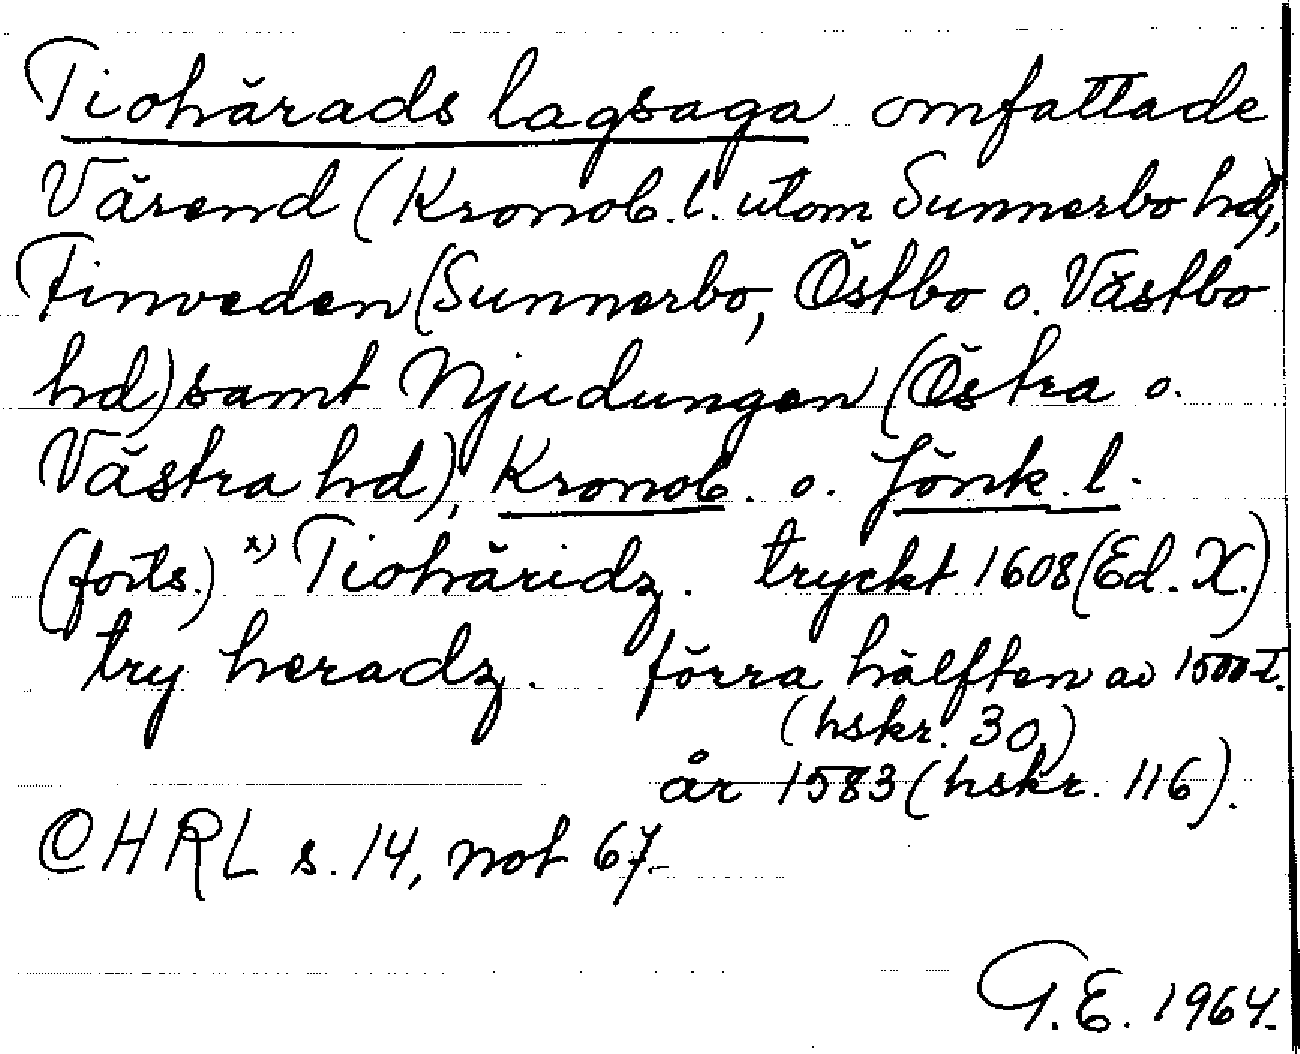 Tiohärads lagsaga omfattade
Värend (Kronob. l. utom Sunnerbo hd),
Finveden (Sunnerbo, Östbo o. Västbo
hd) samt Njudungen (Östra o.
Västra hd), Kronob. o. Jönk. l.
(forts.) x) Tiohäridz. tryckt 1608 (Ed. X.)
try heradz. förra hälften av 1500-t.
(hskr. 30.)
år 1583 (hskr. 116).
CHRL s. 14, not 67.
G.E. 1964.